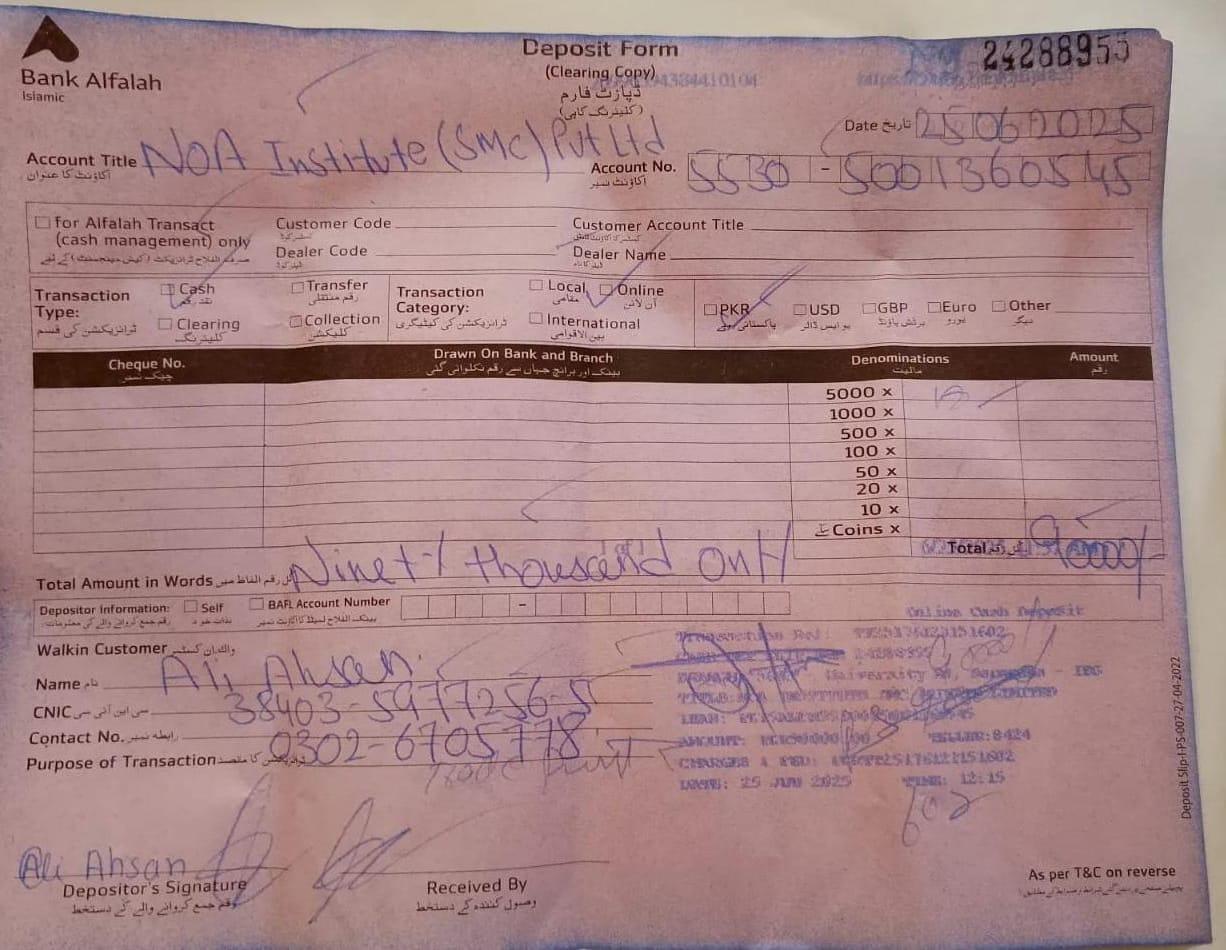 Bank Alfalah
Islamic
Deposit Form
(Clearing Copy)
ڈپازٹ فارم
(کلیئرنگ کاپی)
24288955
Date تاریخ 25062025
Account Title NOA Institute (SMC) Pvt Ltd
اکاؤنٹ کا عنوان
Account No. 5530-5001360545
اکاؤنٹ نمبر
for Alfalah Transact
(cash management) only
Customer Code
Customer Account Title
Dealer Code
Dealer Name
Transaction Type:
ٹرانزیکشن کی قسم
Cash
نقد رقم
Transfer
رقم منتقلی
Clearing
کلیئرنگ
Collection
کلیکشن
Transaction Category:
ٹرانزیکشن کی کیٹیگری
Local
مقامی
Online
آن لائن
International
بین الاقوامی
PKR
پاکستانی روپے
USD
یو ایس ڈالر
GBP
برٹش پاؤنڈ
Euro
یورو
Other
دیگر
Cheque No.
چیک نمبر
Drawn On Bank and Branch
بینک اور برانچ جہاں سے رقم نکلوائی گئی
Denominations
مالیت
Amount
رقم
5000 x
1000 x
500 x
100 x
50 x
20 x
10 x
Coins x
Total 90000/-
Total Amount in Words کل رقم الفاظ میں Ninety thousand only
Depositor Information:
Self
بذات خود
BAFL Account Number
Walkin Customer
Name نام Ali Ahsan
CNIC سی این آئی سی 38403-5977256-5
Contact No. رابطہ نمبر 0302-6705778
Purpose of Transaction ٹرانزیکشن کا مقصد
Online Cash Deposit
University Rd, Sargodha - IBG
TELLER:8424
DATE: 25 JUN 2025 TIME: 12:15
Ali Ahsan
Depositor's Signature
رقم جمع کروانے والے کے دستخط
Received By
وصول کنندہ کے دستخط
As per T&C on reverse
Deposit Slip-I-PS-007-27-04-2022